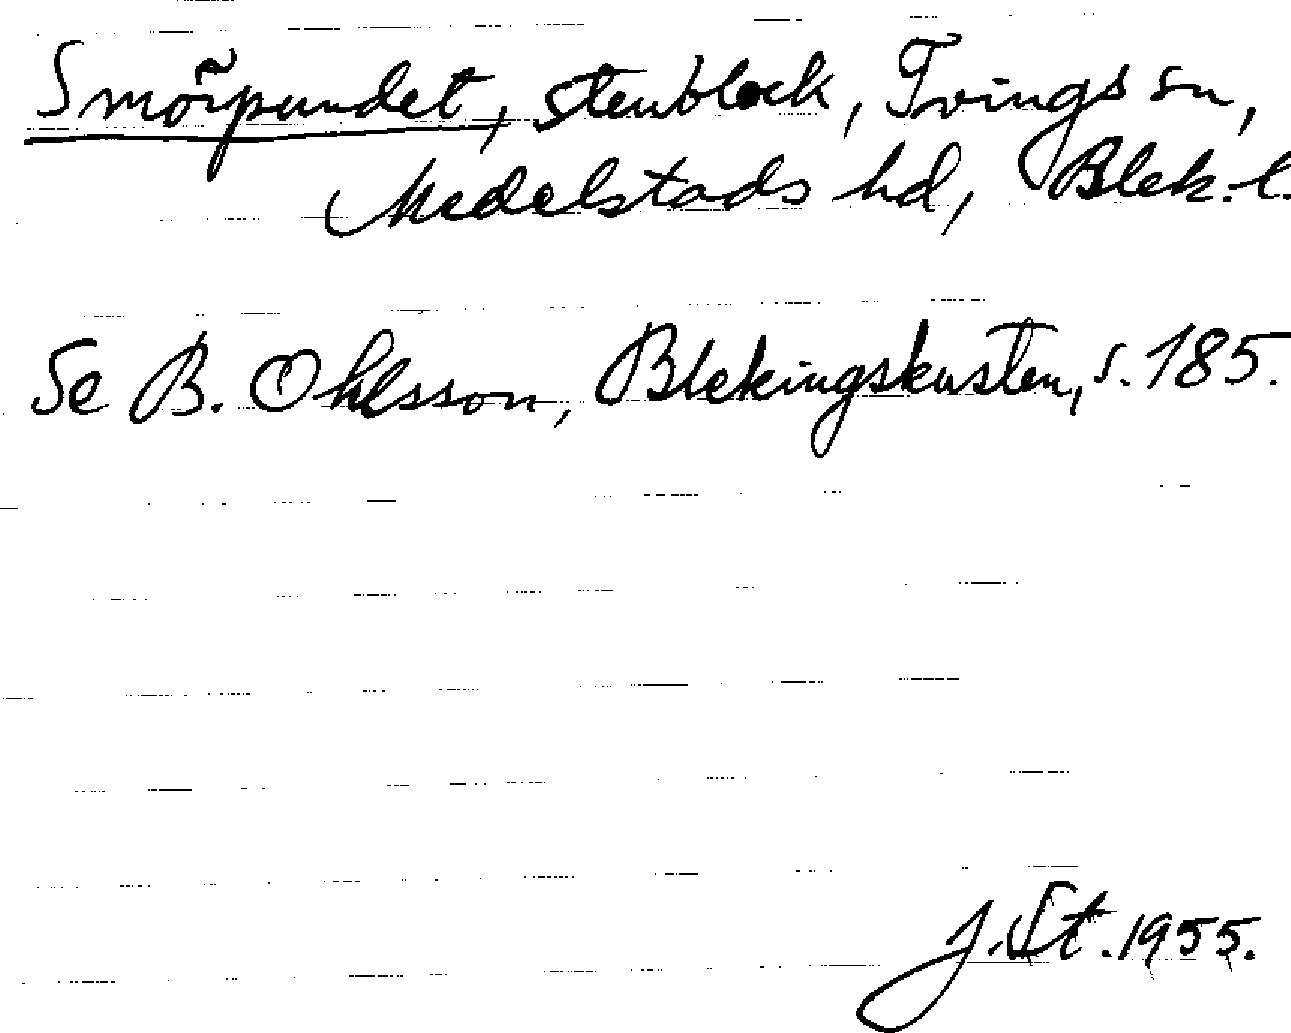 Smörpundet, stenblock, Tvings sn,
Medelstads hd, Blek. l.
Se B. Ohlsson, Blekingskusten, s. 185.
J. St. 1955.